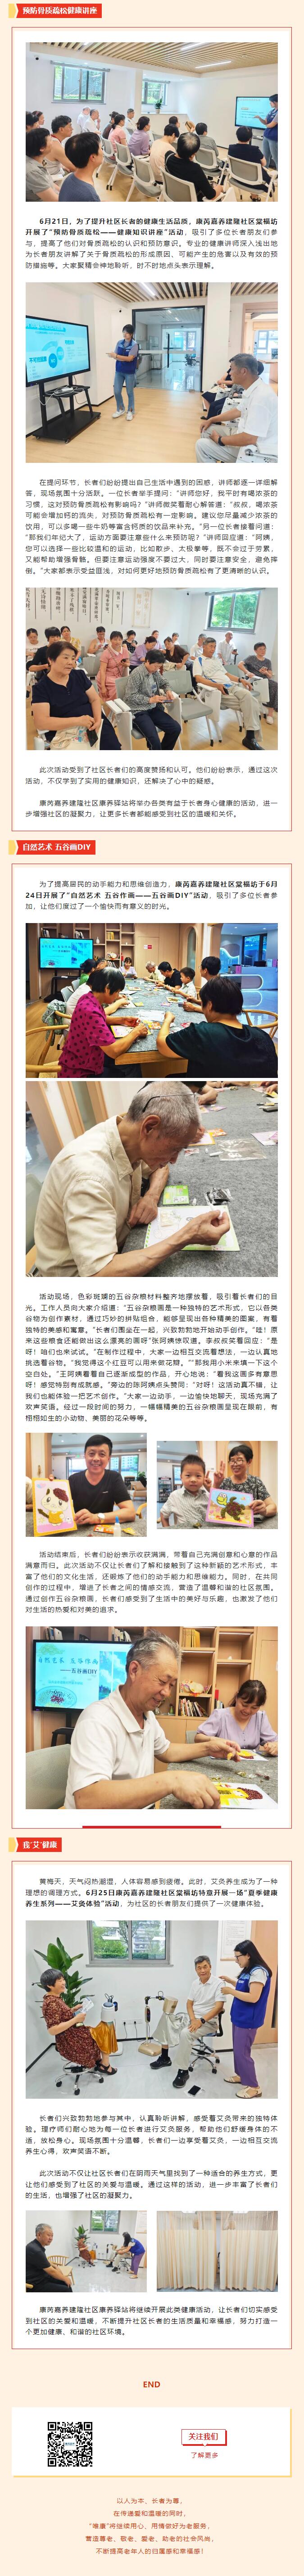 预防骨质疏松健康讲座
6月21日，为了提升社区长者的健康生活品质，康芮嘉养建隆社区棠福坊
开展了“预防骨质疏松——健康知识讲座”活动，吸引了多位长者朋友们参
与，提高了他们对骨质疏松的认识和预防意识。专业的健康讲师深入浅出地
为长者朋友讲解了关于骨质疏松的形成原因，可能产生的危害以及有效的预
防措施等。大家聚精会神地聆听，时不时地点头表示理解。
在提问环节，长者们纷纷提出自己生活中遇到的困惑，讲师都逐一详细解
答，现场氛围十分活跃。一位长者举手提问：“讲师您好，我平时有喝浓茶的
习惯，这对预防骨质疏松有影响吗？”讲师微笑着耐心解答道：“叔叔，喝浓茶
可能会增加钙的流失，对预防骨质疏松有一定影响。建议您尽量减少浓茶的
饮用，可以多喝一些牛奶等富含钙质的饮品来补充。”另一位长者接着问道：
“那我们年纪大了，运动方面要注意些什么来预防呢？”讲师回应道：“阿姨，
您可以选择一些比较温和的运动，比如散步、太极拳等，既不会过于劳累，
又能帮助增强骨骼。但要注意运动强度不要过大，同时要注意安全，避免摔
倒。”大家都表示受益匪浅，对如何更好地预防骨质疏松有了更清晰的认识。
此次活动受到了社区长者们的高度赞扬和认可。他们纷纷表示，通过这次
活动，不仅学到了实用的健康知识，还解决了心中的疑惑。
康芮嘉养建隆社区康养驿站将举办各类有益于长者身心健康的活动，进一
步增强社区的凝聚力，让更多长者都能感受到社区的温暖和关怀。
自然艺术 五谷画DIY
为了提高居民的动手能力和思维创造力，康芮嘉养建隆社区棠福坊于6月
24日开展了“自然艺术 五谷作画——五谷画DIY”活动，吸引了多位长者参
加，让他们度过了一个愉快而有意义的时光。
活动现场，色彩斑斓的五谷杂粮材料整齐地摆放着，吸引着长者们的目
光。工作人员向大家介绍道：“五谷杂粮画是一种独特的艺术形式，它以各类
谷物为创作素材，通过巧妙的拼贴组合，能够呈现出各种精美的图案，有着
独特的美感和寓意。”长者们围坐在一起，兴致勃勃地开始动手创作。“哇！原
来这些粮食还能做出这么漂亮的画呀”张阿姨惊叹道。李叔叔笑着回应：“是
呀！咱们也来试试。”在制作过程中，大家一边相互交流着想法，一边认真地
挑选着谷物。“我觉得这个红豆可以用来做花瓣。”“那我用小米来填一下这个
空白处。”王阿姨看着自己逐渐成型的作品，开心地说：“看我这画多有意思
呀！感觉特别有成就感。”旁边的陈阿姨点头赞同：“对呀！这活动真不错，让
我们也能体验一把艺术创作。”大家一边动手，一边愉快地聊天，现场充满了
欢声笑语。经过一段时间的努力，一幅幅精美的五谷杂粮画呈现在眼前，有
栩栩如生的小动物、美丽的花朵等等。
活动结束后，长者们纷纷表示收获满满，带着自己充满创意和心意的作品
满意而归。此次活动不仅让长者们了解和接触到了这种新颖的艺术形式，丰
富了他们的文化生活，还锻炼了他们的动手能力和思维能力。同时，在共同
创作的过程中，增进了长者之间的情感交流，营造了温馨和谐的社区氛围。
通过创作五谷杂粮画，长者们感受到了生活中的美好与乐趣，也激发了他们
对生活的热爱和对美的追求。
自然艺术 五谷作画
——五谷画DIY
我“艾”健康
黄梅天，天气闷热潮湿，人体容易感到疲倦。此时，艾灸养生成为了一种
理想的调理方式。6月25日康芮嘉养建隆社区棠福坊特意开展一场“夏季健康
养生系列——艾灸体验”活动，为社区的长者朋友们提供了一次健康体验。
长者们兴致勃勃地参与其中，认真聆听讲解，感受着艾灸带来的独特体
验。理疗师们耐心地为每一位长者进行艾灸服务，帮助他们舒缓身体的不
适，放松身心。现场氛围十分温馨，长者们一边享受着艾灸，一边相互交流
养生心得，欢声笑语不断。
此次活动不仅让社区长者们在阴雨天气里找到了一种适合的养生方式，更
让他们感受到了社区的关爱与温暖。通过这样的活动，进一步丰富了长者们
的生活，也增强了社区的凝聚力。
康芮嘉养建隆社区康养驿站将继续开展此类健康活动，让长者们切实感受
到社区的关爱和温暖，不断提升社区长者的生活质量和幸福感，努力打造一
个更加健康、和谐的社区环境。
END
关注我们
了解更多
以人为本、长者为尊，
在传递爱和温暖的同时，
“唯康”将继续用心、用情做好为老服务，
营造尊老、敬老、爱老、助老的社会风尚，
不断提高老年人的归属感和幸福感！